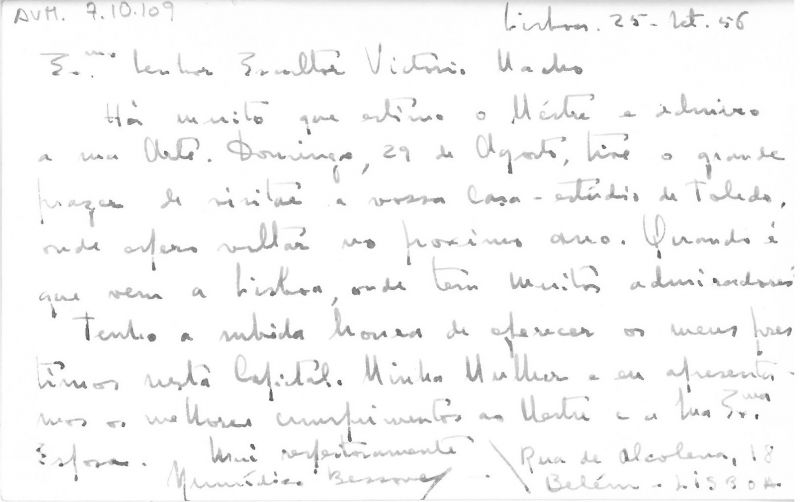 AVM. 7.10.109
Lisboa. 25-Set. 56
Ex.mo Senhor Escultor Victório Macho
Há muito que estimo o Méstre e admiro
a sua Arte. Domingo, 29 de Agosto, tive o grande
prazer de visitar a vossa Casa-estúdio de Toledo,
onde espero voltar no proximo ano. Quando é
que vem a Lisboa, onde tem muitos admiradores
Tenho a subida honra de oferecer os meus pres
timos nesta Capital. Minha Mulher e eu apresenta-
mos os melhores cumprimentos ao Mestre e a Sua Ex.ma
Esposa. Mui respeitosamente
Rua de Alcolena, 18
Belém - LISBOA.